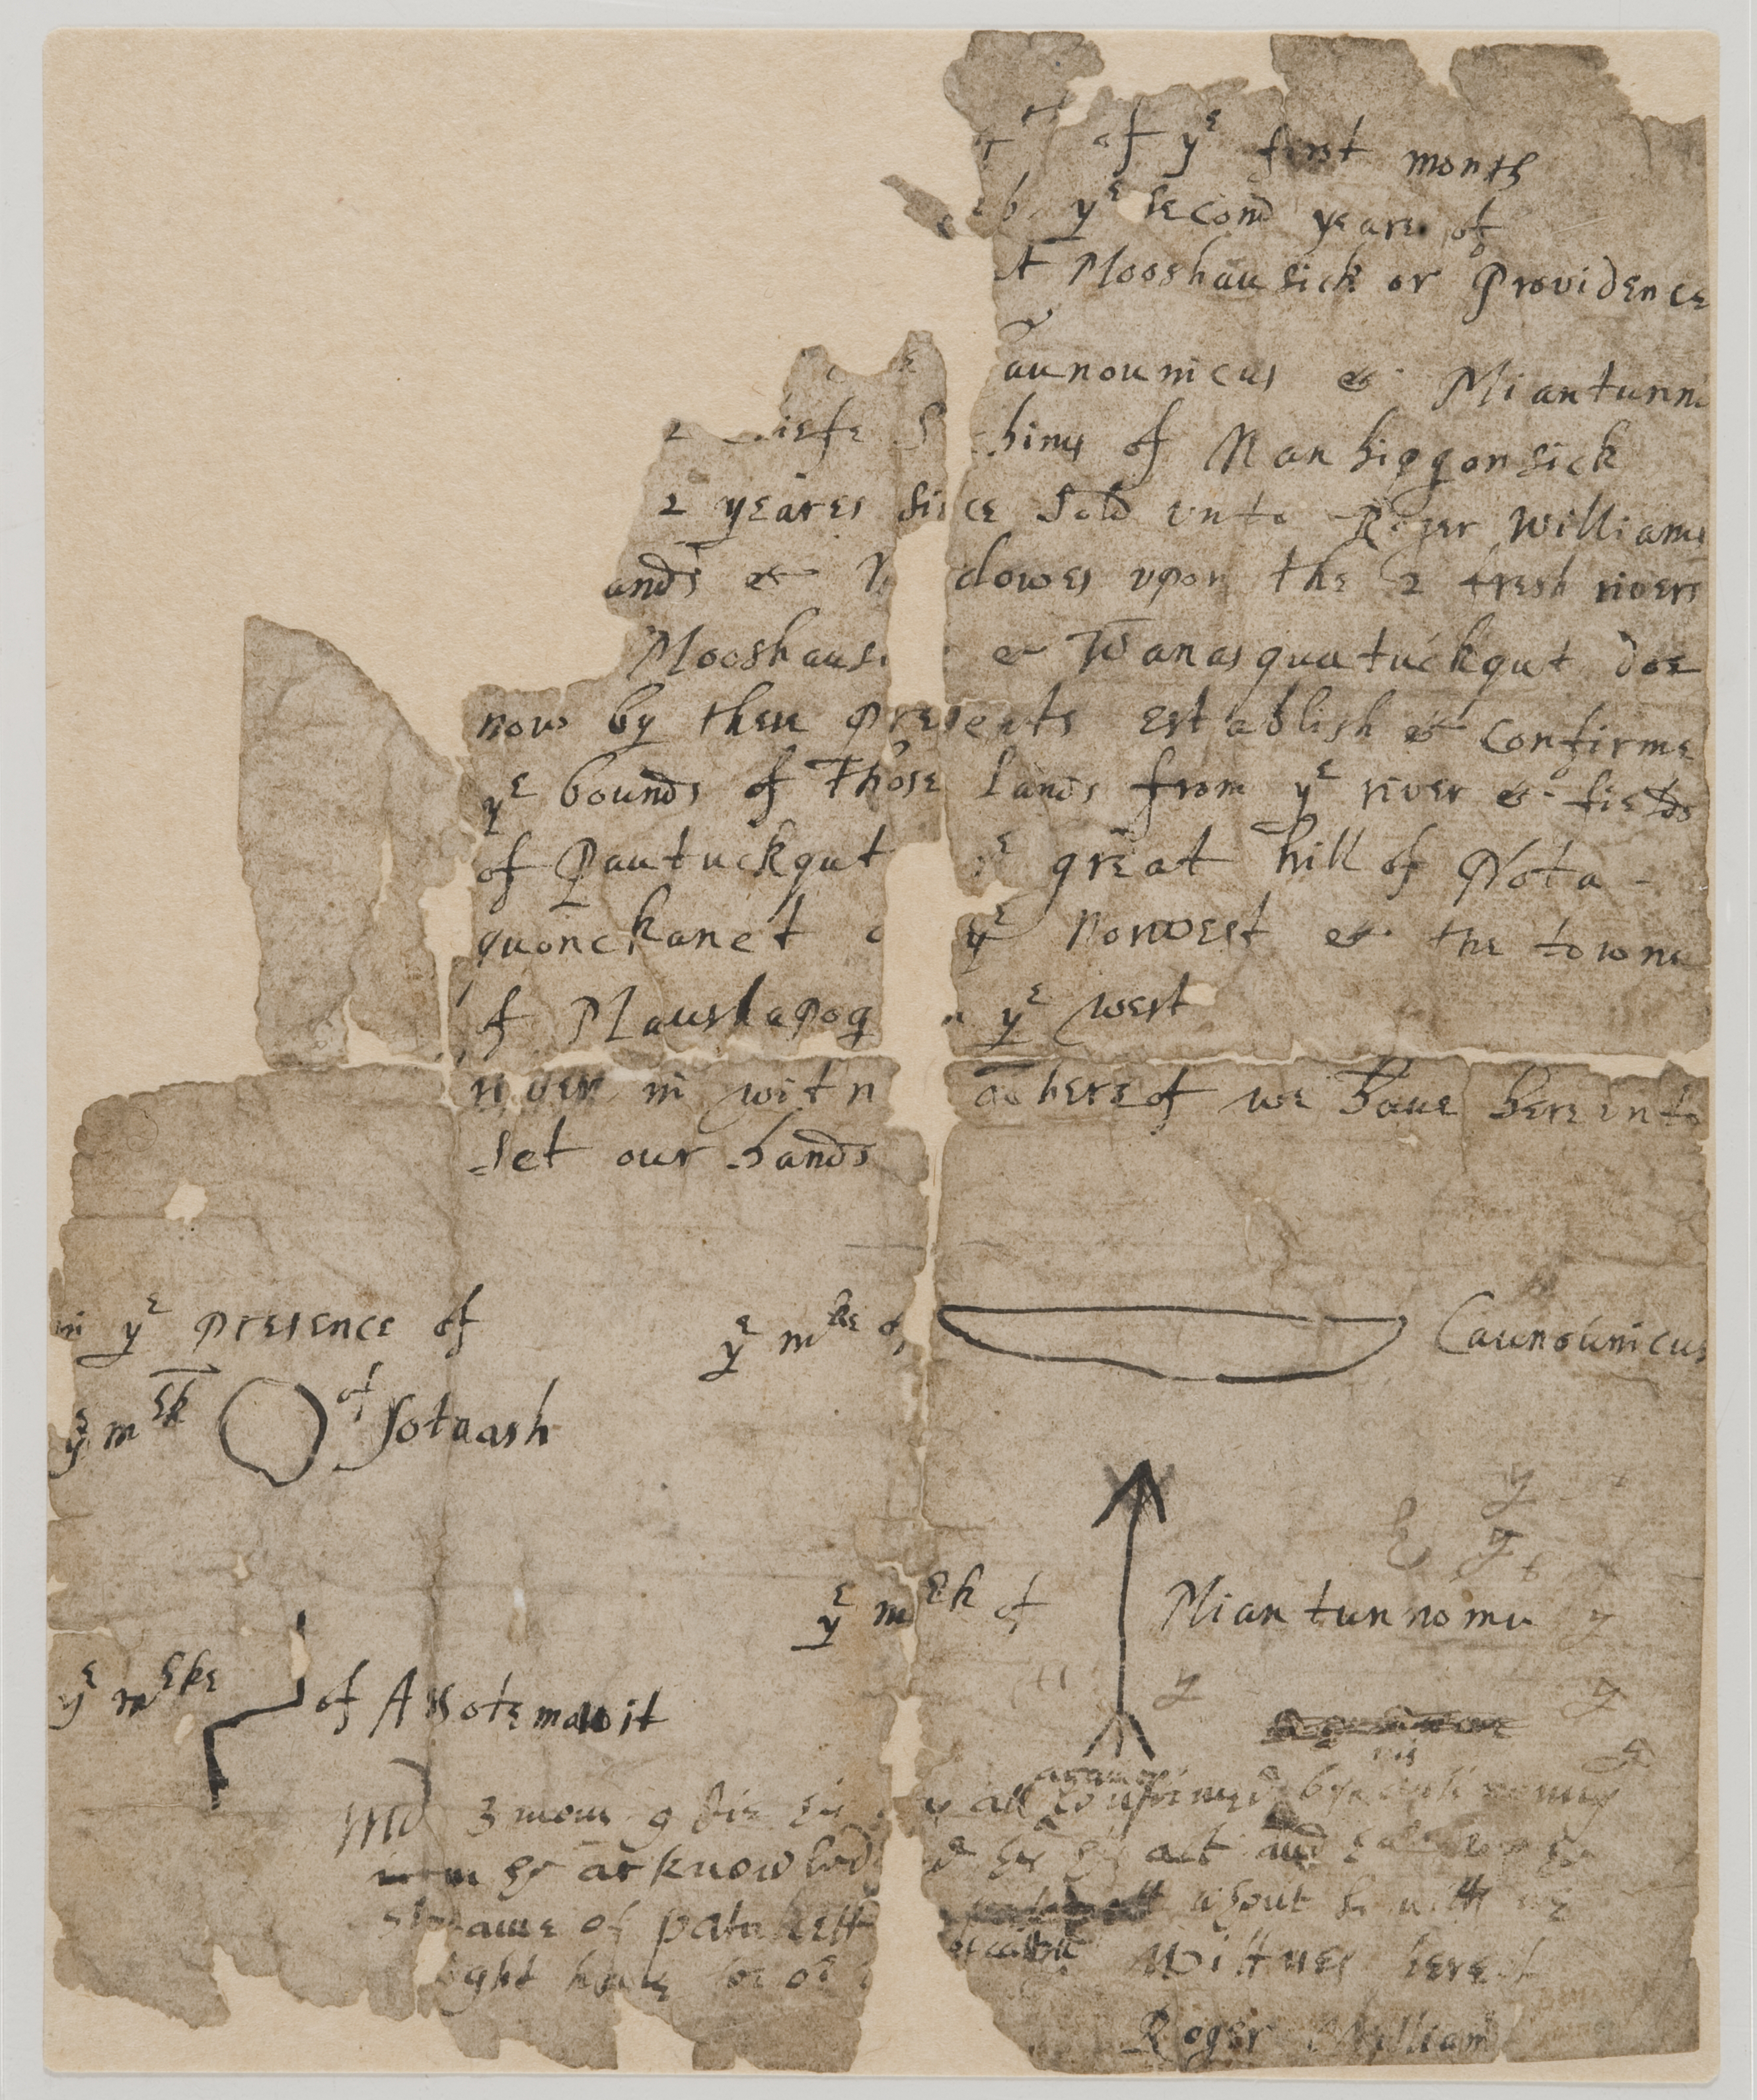 of yᵉ first month
yᵉ second yeare of
At Mooshausick or Providence
aunounicus & Miantunno
2 iefe S hims of Nanhiggonsick
2 yeares since Sold vnto Roger Williams
ands & M dowes vpon the 2 fresh rivers
Mooshausi & Wanasquatuckqut doe
now by these presents establish & confirme
yᵉ bounds of those Lands from yᵉ river & fields
of Pautuckqut yᵉ great hill of Nota-
quonckanet yᵉ norwest & the towne
of Maushapog yᵉ west
river in witn whereof we have herevnto
set our hands
in yᵉ presence of
yᵉ mᵏᵉ of Caunounicus
yᵉ mᵉᵏ of Sotaash
yᵉ mᵉᵏ of Miantunnomu
yᵉ mᵉᵏᵉ of Assotemawit
Md 3 mon 9 all confirmed by
acknowledg act and
streame of patuckett about
ight have for witnes hereof
Roger William